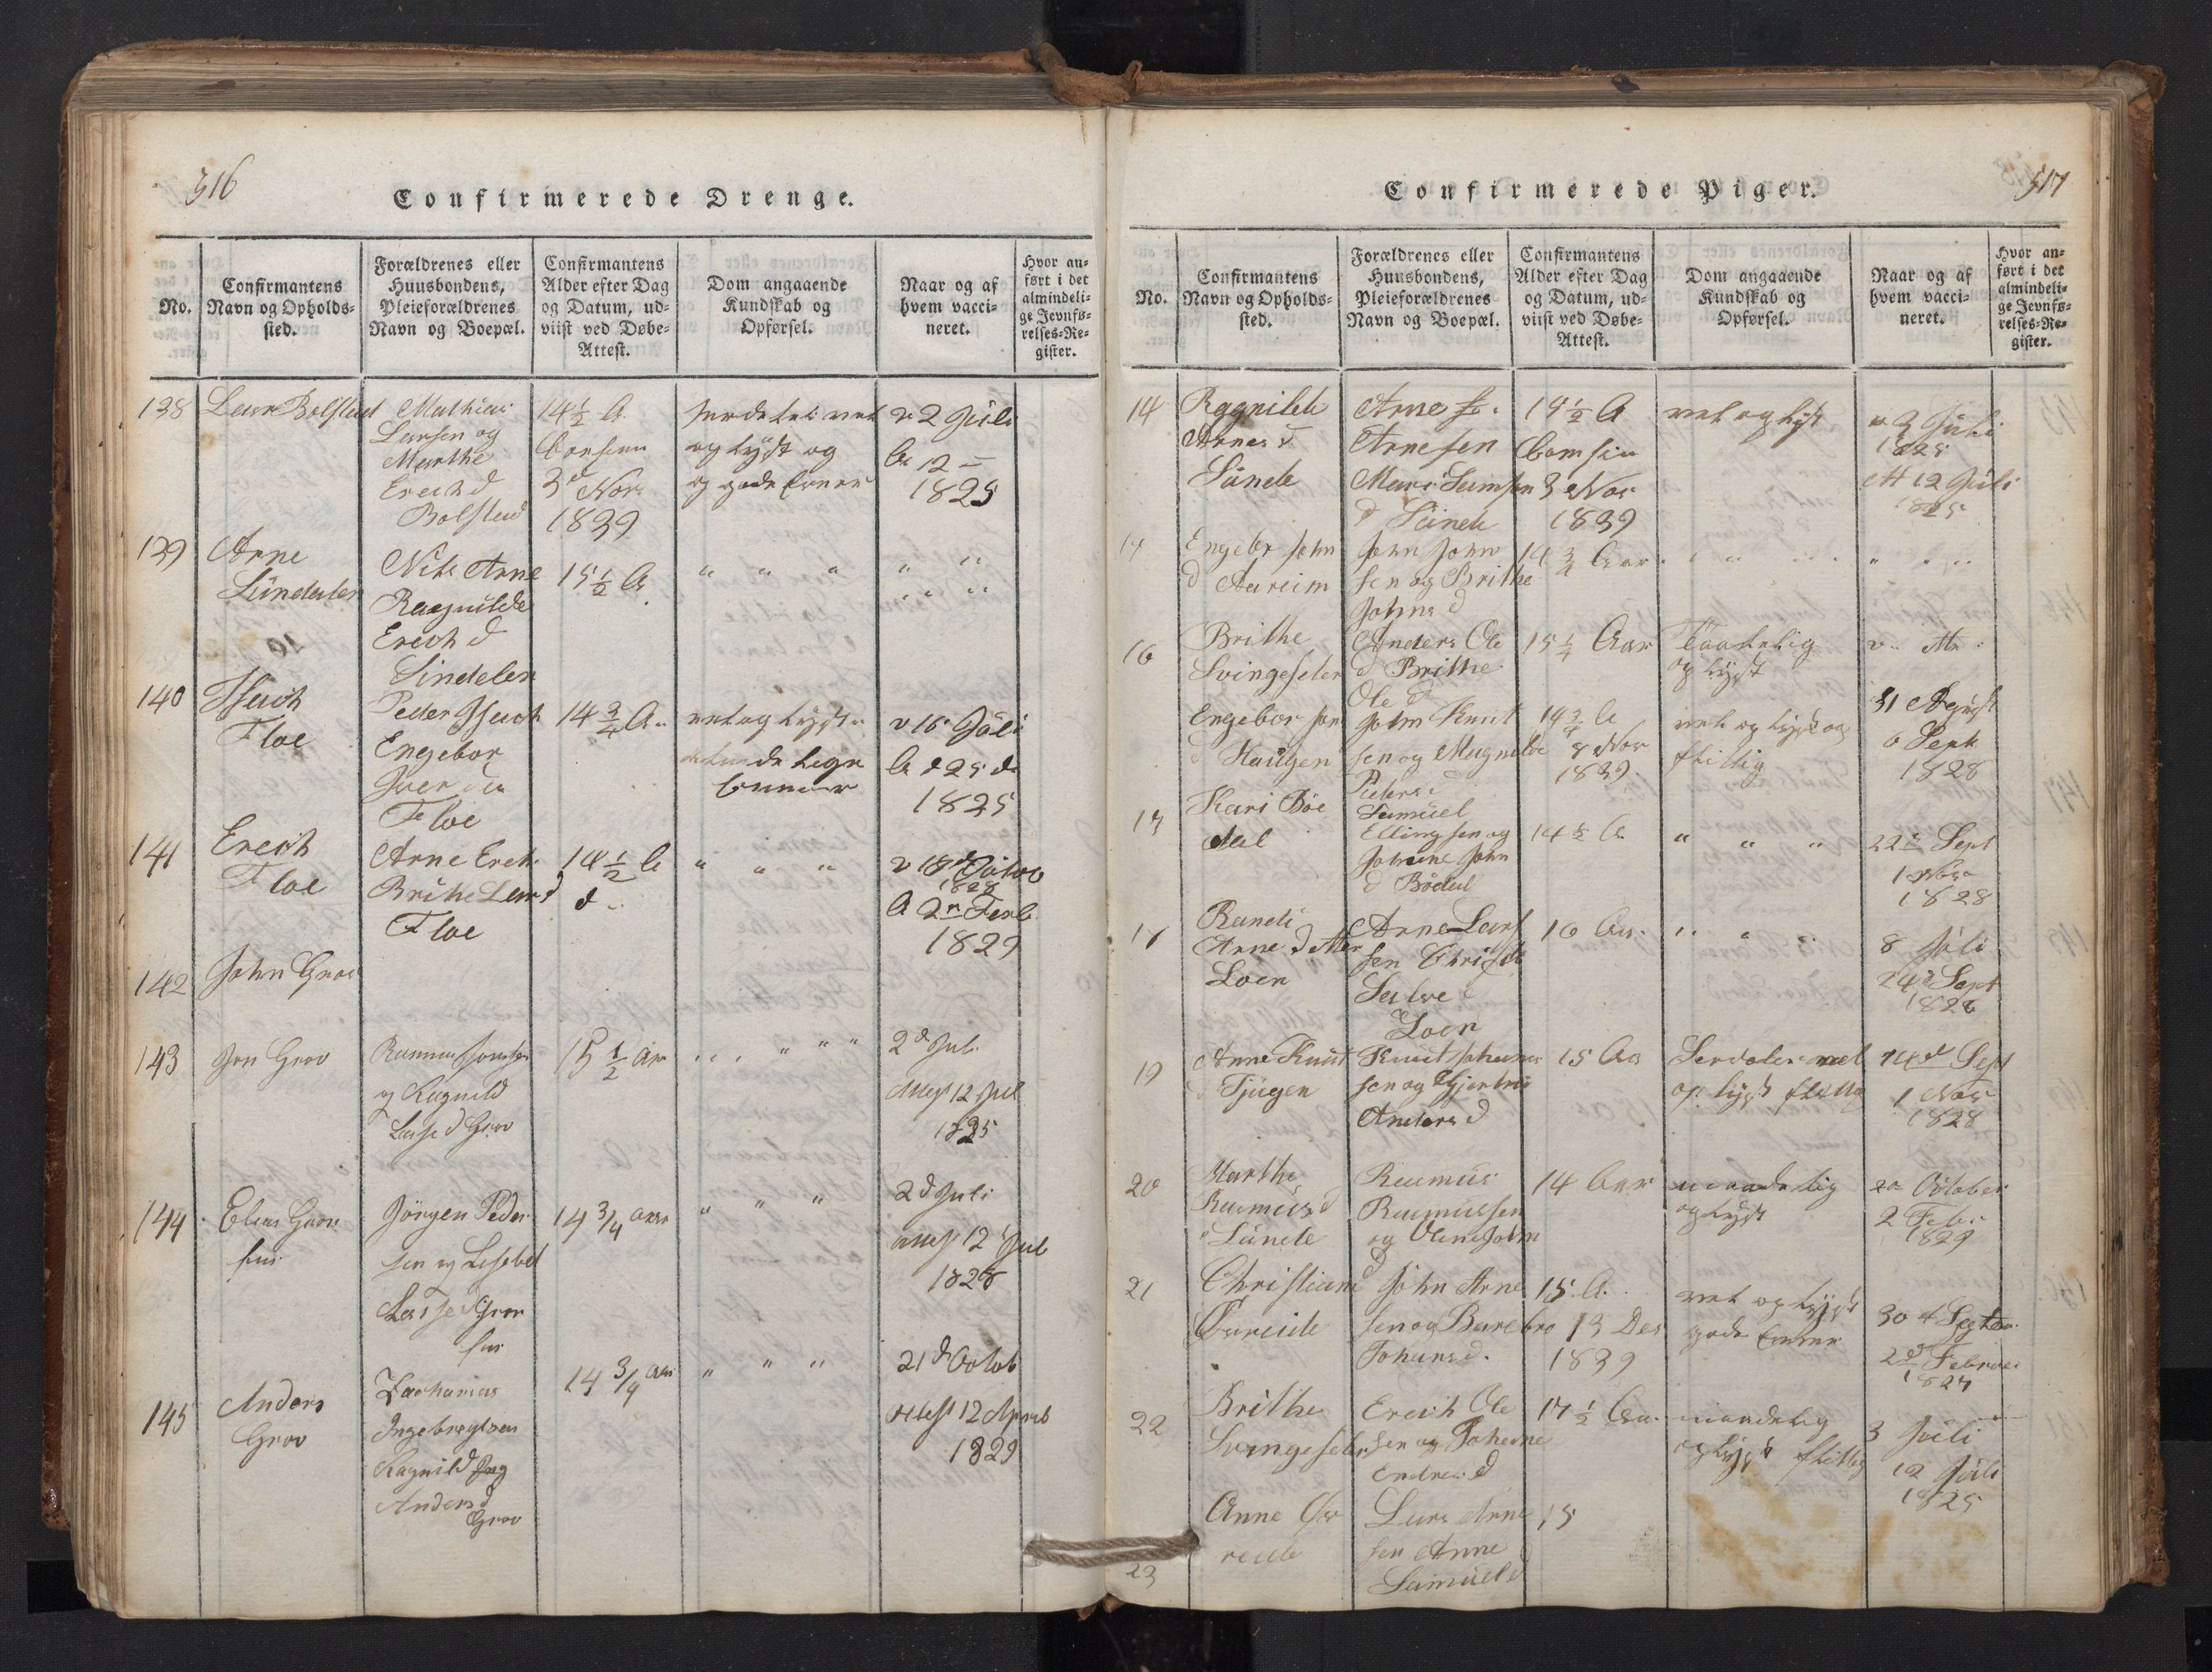 316
Confirmerede Drenge.
No.
Confirmantens
Navn og Opholds-
sted.
Forældrenes eller
Huusbondens,
Pleieforældrenes
Navn og Boepæl.
Confirmantens
Alder efter Dag
og Datum, ud-
viist ved Døbe-
Attest.
Dom angaaende
Kundskab og
Opførsel.
Naar og af
hvem vacci-
neret.
Hvor an-
ført i det
almindeli-
ge Jevnfø-
relses-Re-
gister.
138
Lars Bolstad
Mathias
Larsen og
Marthe
Erech d
Bolstad
14 1/2 A
3 Nov
1839
og lydt og
og gode
v 2 Juli
A 12 —
1825
139
Arne
Sundalen
Nils Arne
Ragnilde
Erech d
Sindelen
15 1/2 A
" " "
" "
140
Floe
Peder
Engebor
Iver
Floe
14 3/4 A
vel og lydt
v 16 Juli
A d 25 d
1825
141
Erech
Floe
Arne Erek
Brithe Lars d
Floe
14 1/2 A
d
" " "
v 18 d
1828
A 2 Feb
1829
142
John Grov
143
Jon Grov
Rasmus
og Ragnild
Lasse d Grov
15 1/2 Aar
" " "
2 d Jul
Attest 12 Jul
1825
144
Elias
Jörgen Peder
sen og Lisebet
Lasse d
14 3/4 aar
" " "
2 d Juli
attest 12 Jul
1828
145
Anders
Grov
Zacharias
Ingebregtsen
Ragnild
Anders d
Grov
14 3/4 aar
" " "
21 d Octob
Attest 12 April
1829
517
Confirmerede Piger.
No.
Confirmantens
Navn og Opholds-
sted.
Forældrenes eller
Huusbondens,
Pleieforældrenes
Navn og Boepæl.
Confirmantens
Alder efter Dag
og Datum, ud-
viist ved Døbe-
Attest.
Dom angaaende
Kundskab og
Opførsel.
Naar og af
hvem vacci-
neret.
Hvor an-
ført i det
almindeli-
ge Jevnfø-
relses-Re-
gister.
14
Ragnilde
Arnes d
Sunde
Arne
Arnesen
Mari Samsen
d Sunde
14 1/2 A
3 Nov
1839
vel og lydt
v 2 Juli
1825
Att 12 Juli
1825
Engeber John
d Aareim
John John
sen og Brithe
Johns d
14 3/4 Aar
16
Brithe
Svingeseter
Anders Ole
d Brithe
Ole d
15 1/4 Aar
Taalelig
og lydt
Engebor Jon
d Haugen
John Knut
sen og Magnilde
Peders d
14 3/4 A
8 Nov
1839
vel og lydt og
flittig
31 August
6 Sept
1828
17
Kari Böe
dal
Samuel
Elling sen og
Johanne John
d Bödal
14 1/2 A
" " "
22 Sept
1 Nov
1828
18
Randi
Arne datter
Loen
Arne Lars
sen Christi
Salve d
Loen
16 Aar
8 Juli
24 Sept
1828
19
Anne Knut
d Tjugen
Knut Johannes
sen og Gjertrue
Anders d
15 Aar
Serdeles vel
og lydt flittig
14 d Sept
1 Nov
1828
20
Marthe
Rasmus d
Sunde
Rasmus
Rasmussen
og Oline John
d
14 Aar
maadelig
og lydt
20 October
2 Feb
1829
21
Christiane
Övreide
John Arne
sen og Barebro
Johans d.
15 A.
13 Des
1839
vel og lydt
gode Evner
30 Septbr
2 d Februar
22
Brithe
Svingeseter
Erech Ole
sen og Johanne
Endres d
17 1/2 Aar
maadelig
og lydt flittig
3 Juli
12 Juli
1825
23
Anne Öv
reide
Lars Arne
sen Anne
Samuel d
15